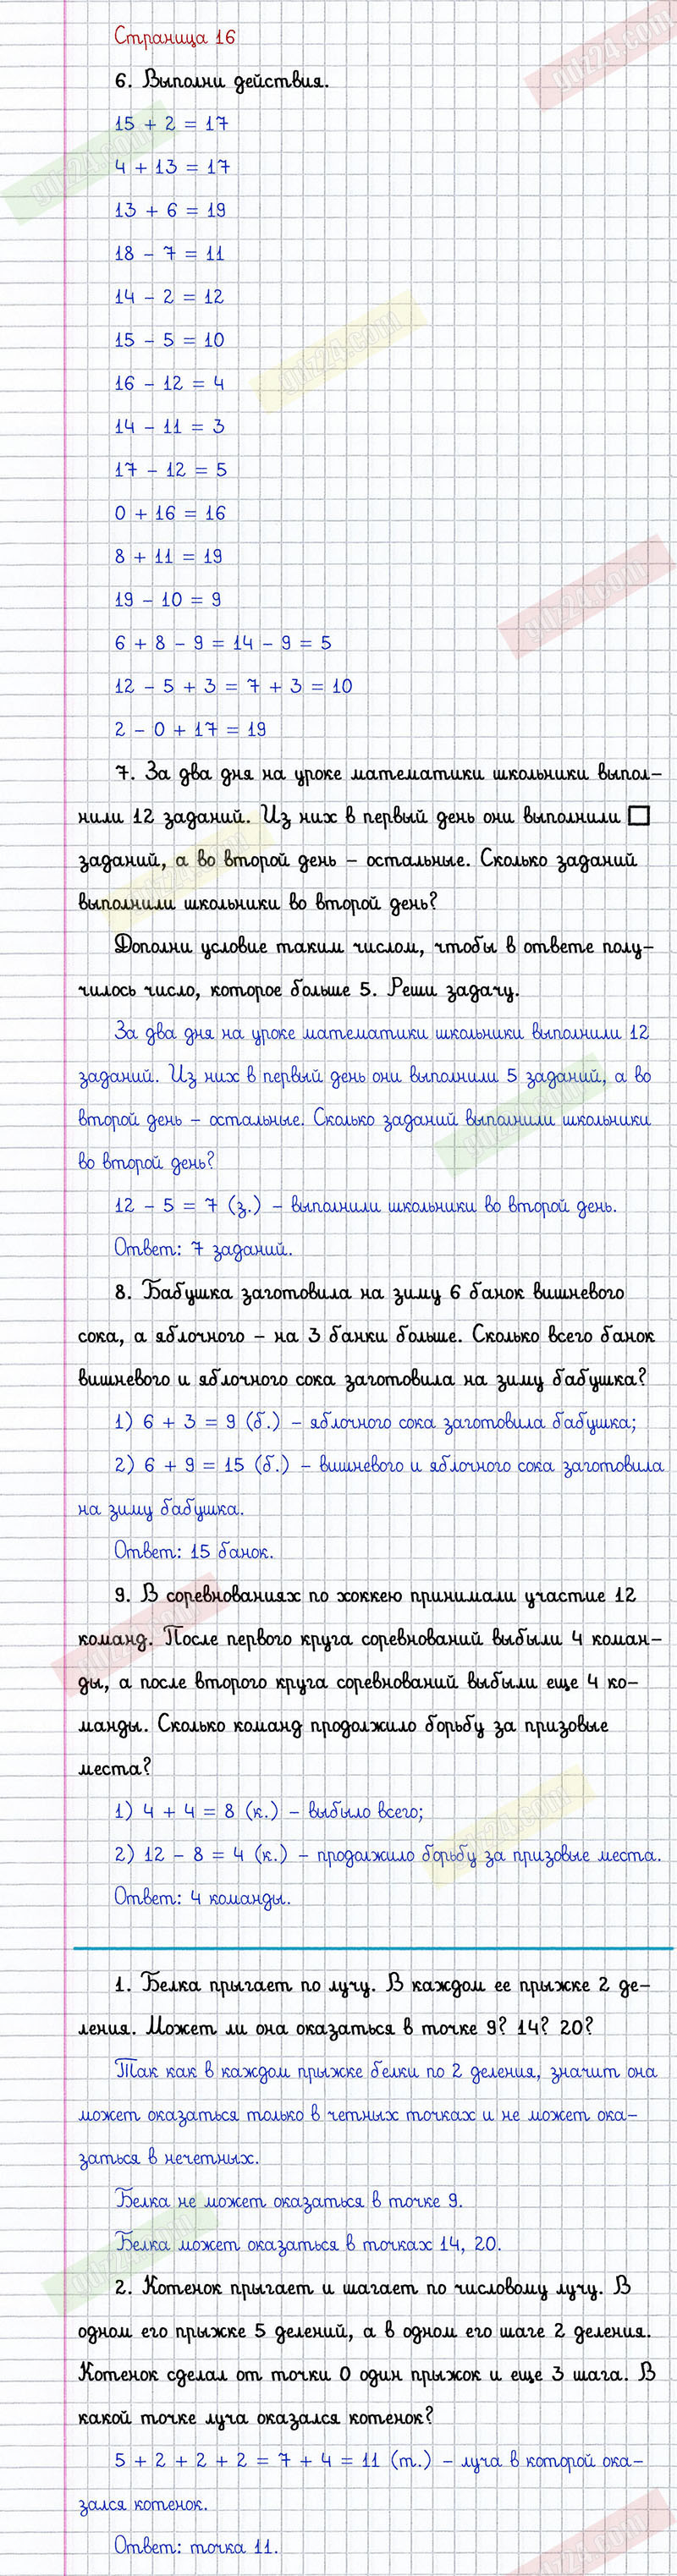 Страница 16
6. Выполни действия.
15 + 2 = 17
4 + 13 = 17
13 + 6 = 19
18 - 7 = 11
14 - 2 = 12
15 - 5 = 10
16 - 12 = 4
14 - 11 = 3
17 - 12 = 5
0 + 16 = 16
8 + 11 = 19
19 - 10 = 9
6 + 8 - 9 = 14 - 9 = 5
12 - 5 + 3 = 7 + 3 = 10
2 - 0 + 17 = 19
7. За два дня на уроке математики школьники выпол-
нили 12 заданий. Из них в первый день они выполнили □
заданий, а во второй день - остальные. Сколько заданий
выполнили школьники во второй день?
Дополни условие таким числом, чтобы в ответе полу-
чилось число, которое больше 5. Реши задачу.
За два дня на уроке математики школьники выполнили 12
заданий. Из них в первый день они выполнили 5 заданий, а во
второй день - остальные. Сколько заданий выполнили школьники
во второй день?
12 - 5 = 7 (з.) - выполнили школьники во второй день.
Ответ: 7 заданий.
8. Бабушка заготовила на зиму 6 банок вишневого
сока, а яблочного - на 3 банки больше. Сколько всего банок
вишневого и яблочного сока заготовила на зиму бабушка?
1) 6 + 3 = 9 (б.) - яблочного сока заготовила бабушка;
2) 6 + 9 = 15 (б.) - вишневого и яблочного сока заготовила
на зиму бабушка.
Ответ: 15 банок.
9. В соревнованиях по хоккею принимали участие 12
команд. После первого круга соревнований выбыли 4 коман-
ды, а после второго круга соревнований выбыли еще 4 ко-
манды. Сколько команд продолжило борьбу за призовые
места?
1) 4 + 4 = 8 (к.) - выбыло всего;
2) 12 - 8 = 4 (к.) - продолжило борьбу за призовые места.
Ответ: 4 команды.
1. Белка прыгает по лучу. В каждом ее прыжке 2 де-
ления. Может ли она оказаться в точке 9? 14? 20?
Так как в каждом прыжке белки по 2 деления, значит она
может оказаться только в четных точках и не может ока-
заться в нечетных.
Белка не может оказаться в точке 9.
Белка может оказаться в точках 14, 20.
2. Котенок прыгает и шагает по числовому лучу. В
одном его прыжке 5 делений, а в одном его шаге 2 деления.
Котенок сделал от точки 0 один прыжок и еще 3 шага. В
какой точке луча оказался котенок?
5 + 2 + 2 + 2 = 7 + 4 = 11 (т.) - луча в которой ока-
зался котенок.
Ответ: точка 11.
gdz24.com
gdz24.com
gdz24.com
gdz24.com
gdz24.com
gdz24.com
gdz24.com
gdz24.com
gdz24.com
gdz24.com